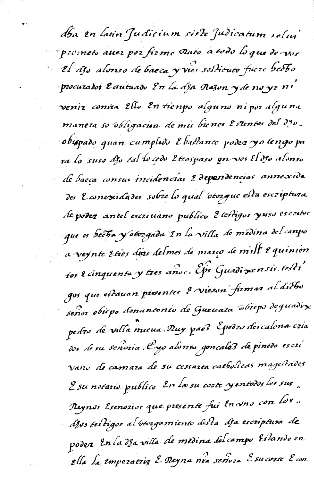 dha en latin Judicium sisti Judicatum solui
prometo aver por firme Rato a todo lo que de vos
El dho alonso de baeca y vros sostitutos fuere hecho
procurado E autuado En la dha Razon y de no yr ni
venir contra Ello En tiempo alguno ni por alguna
manera so obligacion de mis bienes E Rentas del dho
obispado quan cumplido E bastante poder yo tengo para
lo suso dho tal lo cedo E traspaso en vos El dho alonso
de baeca con sus incidencias E dependencias annexida
des E conexidades sobre lo qual otorgue esta escriptura
de poder antel escrivano publico E testigos yuso escritos
que es fecha y otorgada En la villa de medina del campo
a veynte E tres dias del mes de março de mill E quinien
tos E cinquenta y tres años. Eps Guadixensis testi
gos que estavan presentes E vieron firmar al dicho
señor obispo don antonio de Guevara obispo de guadix
pedro de villa nueva. Ruy paez E pedro de escalona cria
dos de su señoria. E yo alonso gonçalez de pineda escri
vano de camara de su cesarea catholicas magestades
E su notario publico En la su corte y en todos los sus
Reynos E señorios que presente fui En uno con los
dhos testigos al otorgamiento desta dha escriptura de
poder En la dha villa de medina del campo Estando en
Ella la emperatriz E Reyna nra señora E su corte E con